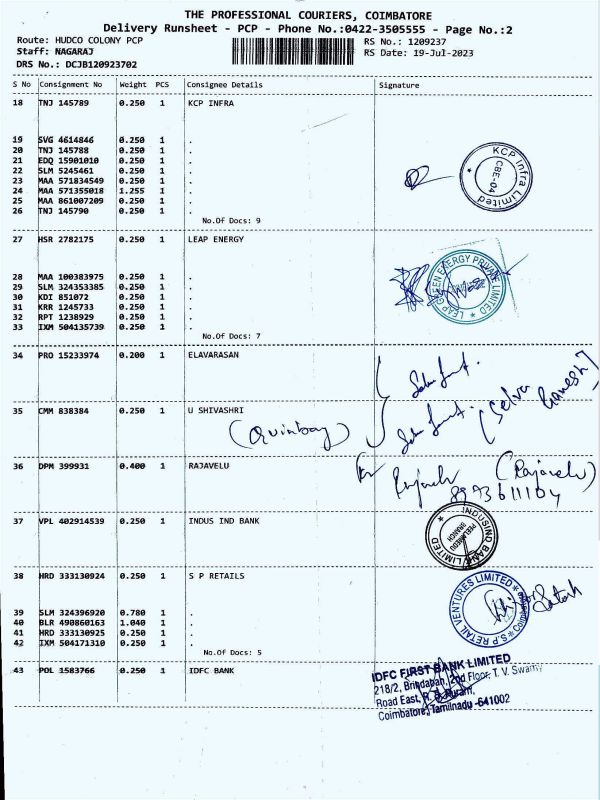 THE PROFESSIONAL COURIERS, COIMBATORE
Delivery Runsheet - PCP - Phone No.:0422-3505555 - Page No.:2
Route: HUDCO COLONY PCP
Staff: NAGARAJ
DRS No.: DCJB120923702
RS No.: 1209237
RS Date: 19-Jul-2023
S No Consignment No Weight PCS Consignee Details Signature
18 TNJ 145789 0.250 1 KCP INFRA
19 SVG 4614846 0.250 1 .
20 TNJ 145788 0.250 1 .
21 EDQ 15901010 0.250 1 .
22 SLM 5245461 0.250 1 .
23 MAA 571834549 0.250 1 .
24 MAA 571355018 1.255 1 .
25 MAA 861007209 0.250 1 .
26 TNJ 145790 0.250 1 .
No.Of Docs: 9
KCP Infra Limited
CBE-04
27 HSR 2782175 0.250 1 LEAP ENERGY
28 MAA 100383975 0.250 1 .
29 SLM 324353385 0.250 1 .
30 KDI 851072 0.250 1 .
31 KRR 1245733 0.250 1 .
32 RPT 1238929 0.250 1 .
33 IXM 504135739 0.250 1 .
No.Of Docs: 7
LEAP GREEN ENERGY PRIVATE LIMITED
34 PRO 15233974 0.200 1 ELAVARASAN
35 CMM 838384 0.250 1 U SHIVASHRI
(Selva Ganesh)
36 DPM 399931 0.400 1 RAJAVELU
Rajavelu (Rajavelu)
8973611104
37 VPL 402914539 0.250 1 INDUS IND BANK
INDUSIND BANK LIMITED
BRANCH
38 HRD 333130924 0.250 1 S P RETAILS
39 SLM 324396920 0.780 1 .
40 BLR 490860163 1.040 1 .
41 HRD 333130925 0.250 1 .
42 IXM 504171310 0.250 1 .
No.Of Docs: 5
S.P RETAIL VENTURES LIMITED
Coimbatore
Satosh
43 POL 1583766 0.250 1 IDFC BANK
IDFC FIRST BANK LIMITED
218/2, Brindaban, 2nd Floor, T. V. Swamy
Road East, R. S. Puram,
Coimbatore, Tamilnadu -641002